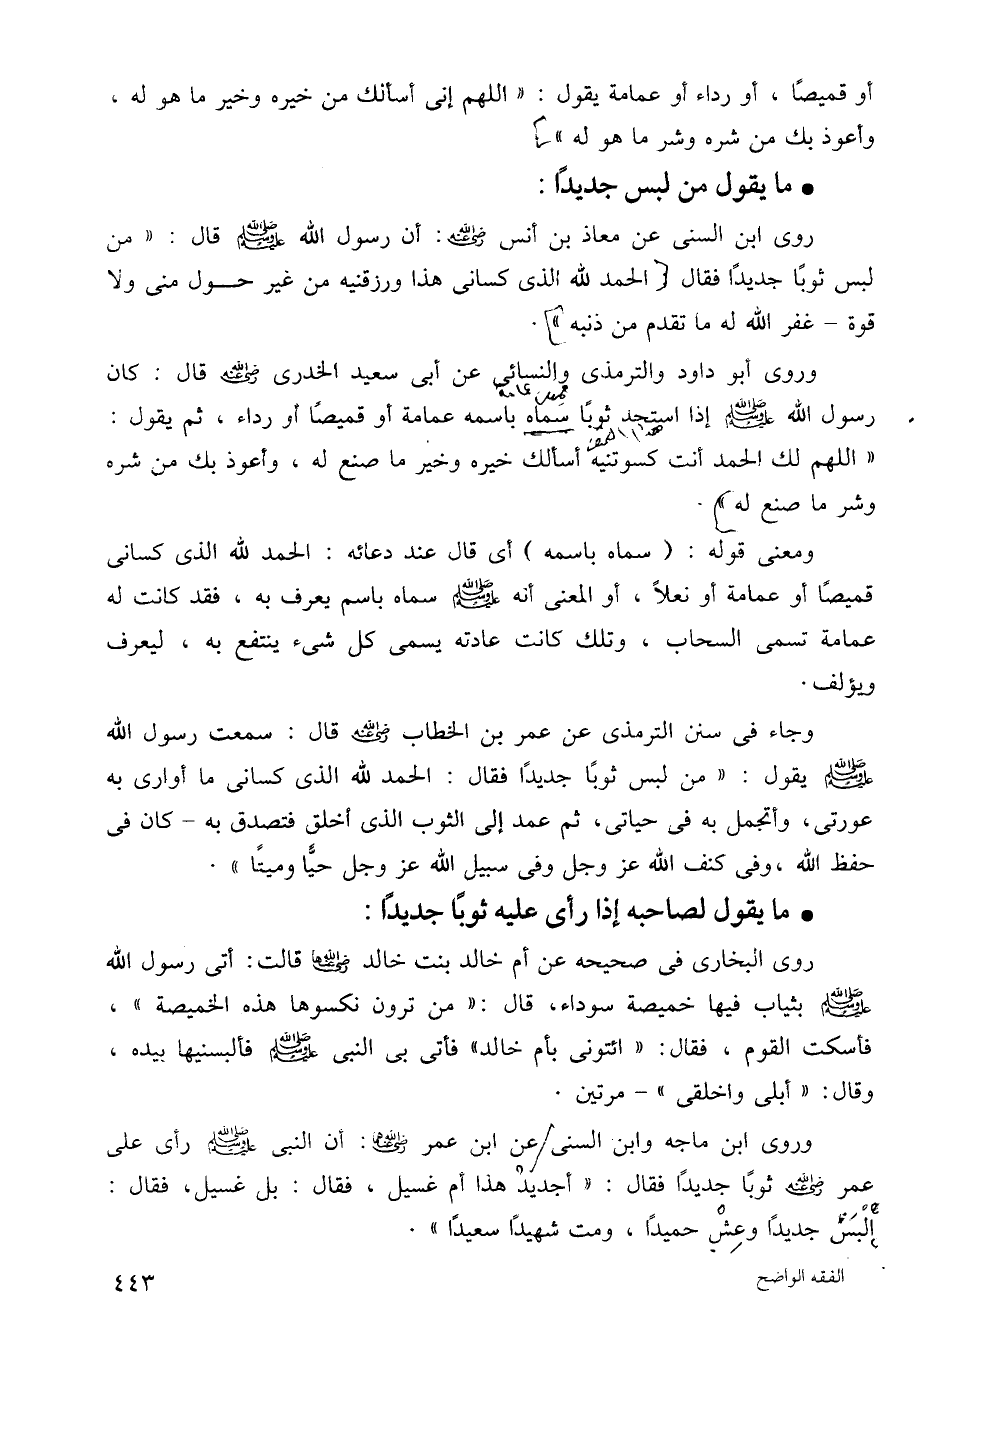 أو قميصًا ، أو رداء أو عمامة يقول : « اللهم إنى أسألك من خيره وخير ما هو له ،
وأعوذ بك من شره وشر ما هو له »
• ما يقول من لبس جديدًا :
روى ابن السنى عن معاذ بن أنس رضي الله عنه : أن رسول الله ﷺ قال : « من
لبس ثوبًا جديدًا فقال [ الحمد لله الذى كسانى هذا ورزقنيه من غير حـــول منى ولا
قوة – غفر الله له ما تقدم من ذنبه »] .
وروى أبو داود والترمذى والنسائى عن أبى سعيد الخدرى رضي الله عنه قال : كان
رسول الله ﷺ إذا استجد ثوبًا سماه باسمه عمامة أو قميصًا أو رداء ، ثم يقول :
« اللهم لك الحمد أنت كسوتنيه أسألك خيره وخير ما صنع له ، وأعوذ بك من شره
وشر ما صنع له » .
ومعنى قوله : ( سماه باسمه ) أى قال عند دعائه : الحمد لله الذى كسانى
قميصًا أو عمامة أو نعلاً ، أو المعنى أنه ﷺ سماه باسم يعرف به ، فقد كانت له
عمامة تسمى السحاب ، وتلك كانت عادته يسمى كل شىء ينتفع به ، ليعرف
ويؤلف .
وجاء فى سنن الترمذى عن عمر بن الخطاب رضي الله عنه قال : سمعت رسول الله
ﷺ يقول : « من لبس ثوبًا جديدًا فقال : الحمد لله الذى كسانى ما أوارى به
عورتى، وأتجمل به فى حياتى، ثم عمد إلى الثوب الذى أخلق فتصدق به – كان فى
حفظ الله ،وفى كنف الله عز وجل وفى سبيل الله عز وجل حيًّا وميتًا » .
• ما يقول لصاحبه إذا رأى عليه ثوبًا جديدًا :
روى البخارى فى صحيحه عن أم خالد بنت خالد رضي الله عنها قالت: أتى رسول الله
ﷺ بثياب فيها خميصة سوداء، قال :« من ترون نكسوها هذه الخميصة » ،
فأسكت القوم ، فقال: « ائتونى بأم خالد» فأتى بى النبى ﷺ فألبسنيها بيده ،
وقال: « أبلى واخلقى » – مرتين .
وروى ابن ماجه وابن السنى/عن ابن عمر رضي الله عنهما : أن النبى ﷺ رأى على
عمر رضي الله عنه ثوبًا جديدًا فقال : « أجديدٌ هذا أم غسيل ، فقال : بل غسيل، فقال :
إِلْبَسْ جديدًا وعِشْ حميدًا ، ومت شهيدًا سعيدًا » .
الفقه الواضح
٤٤٣